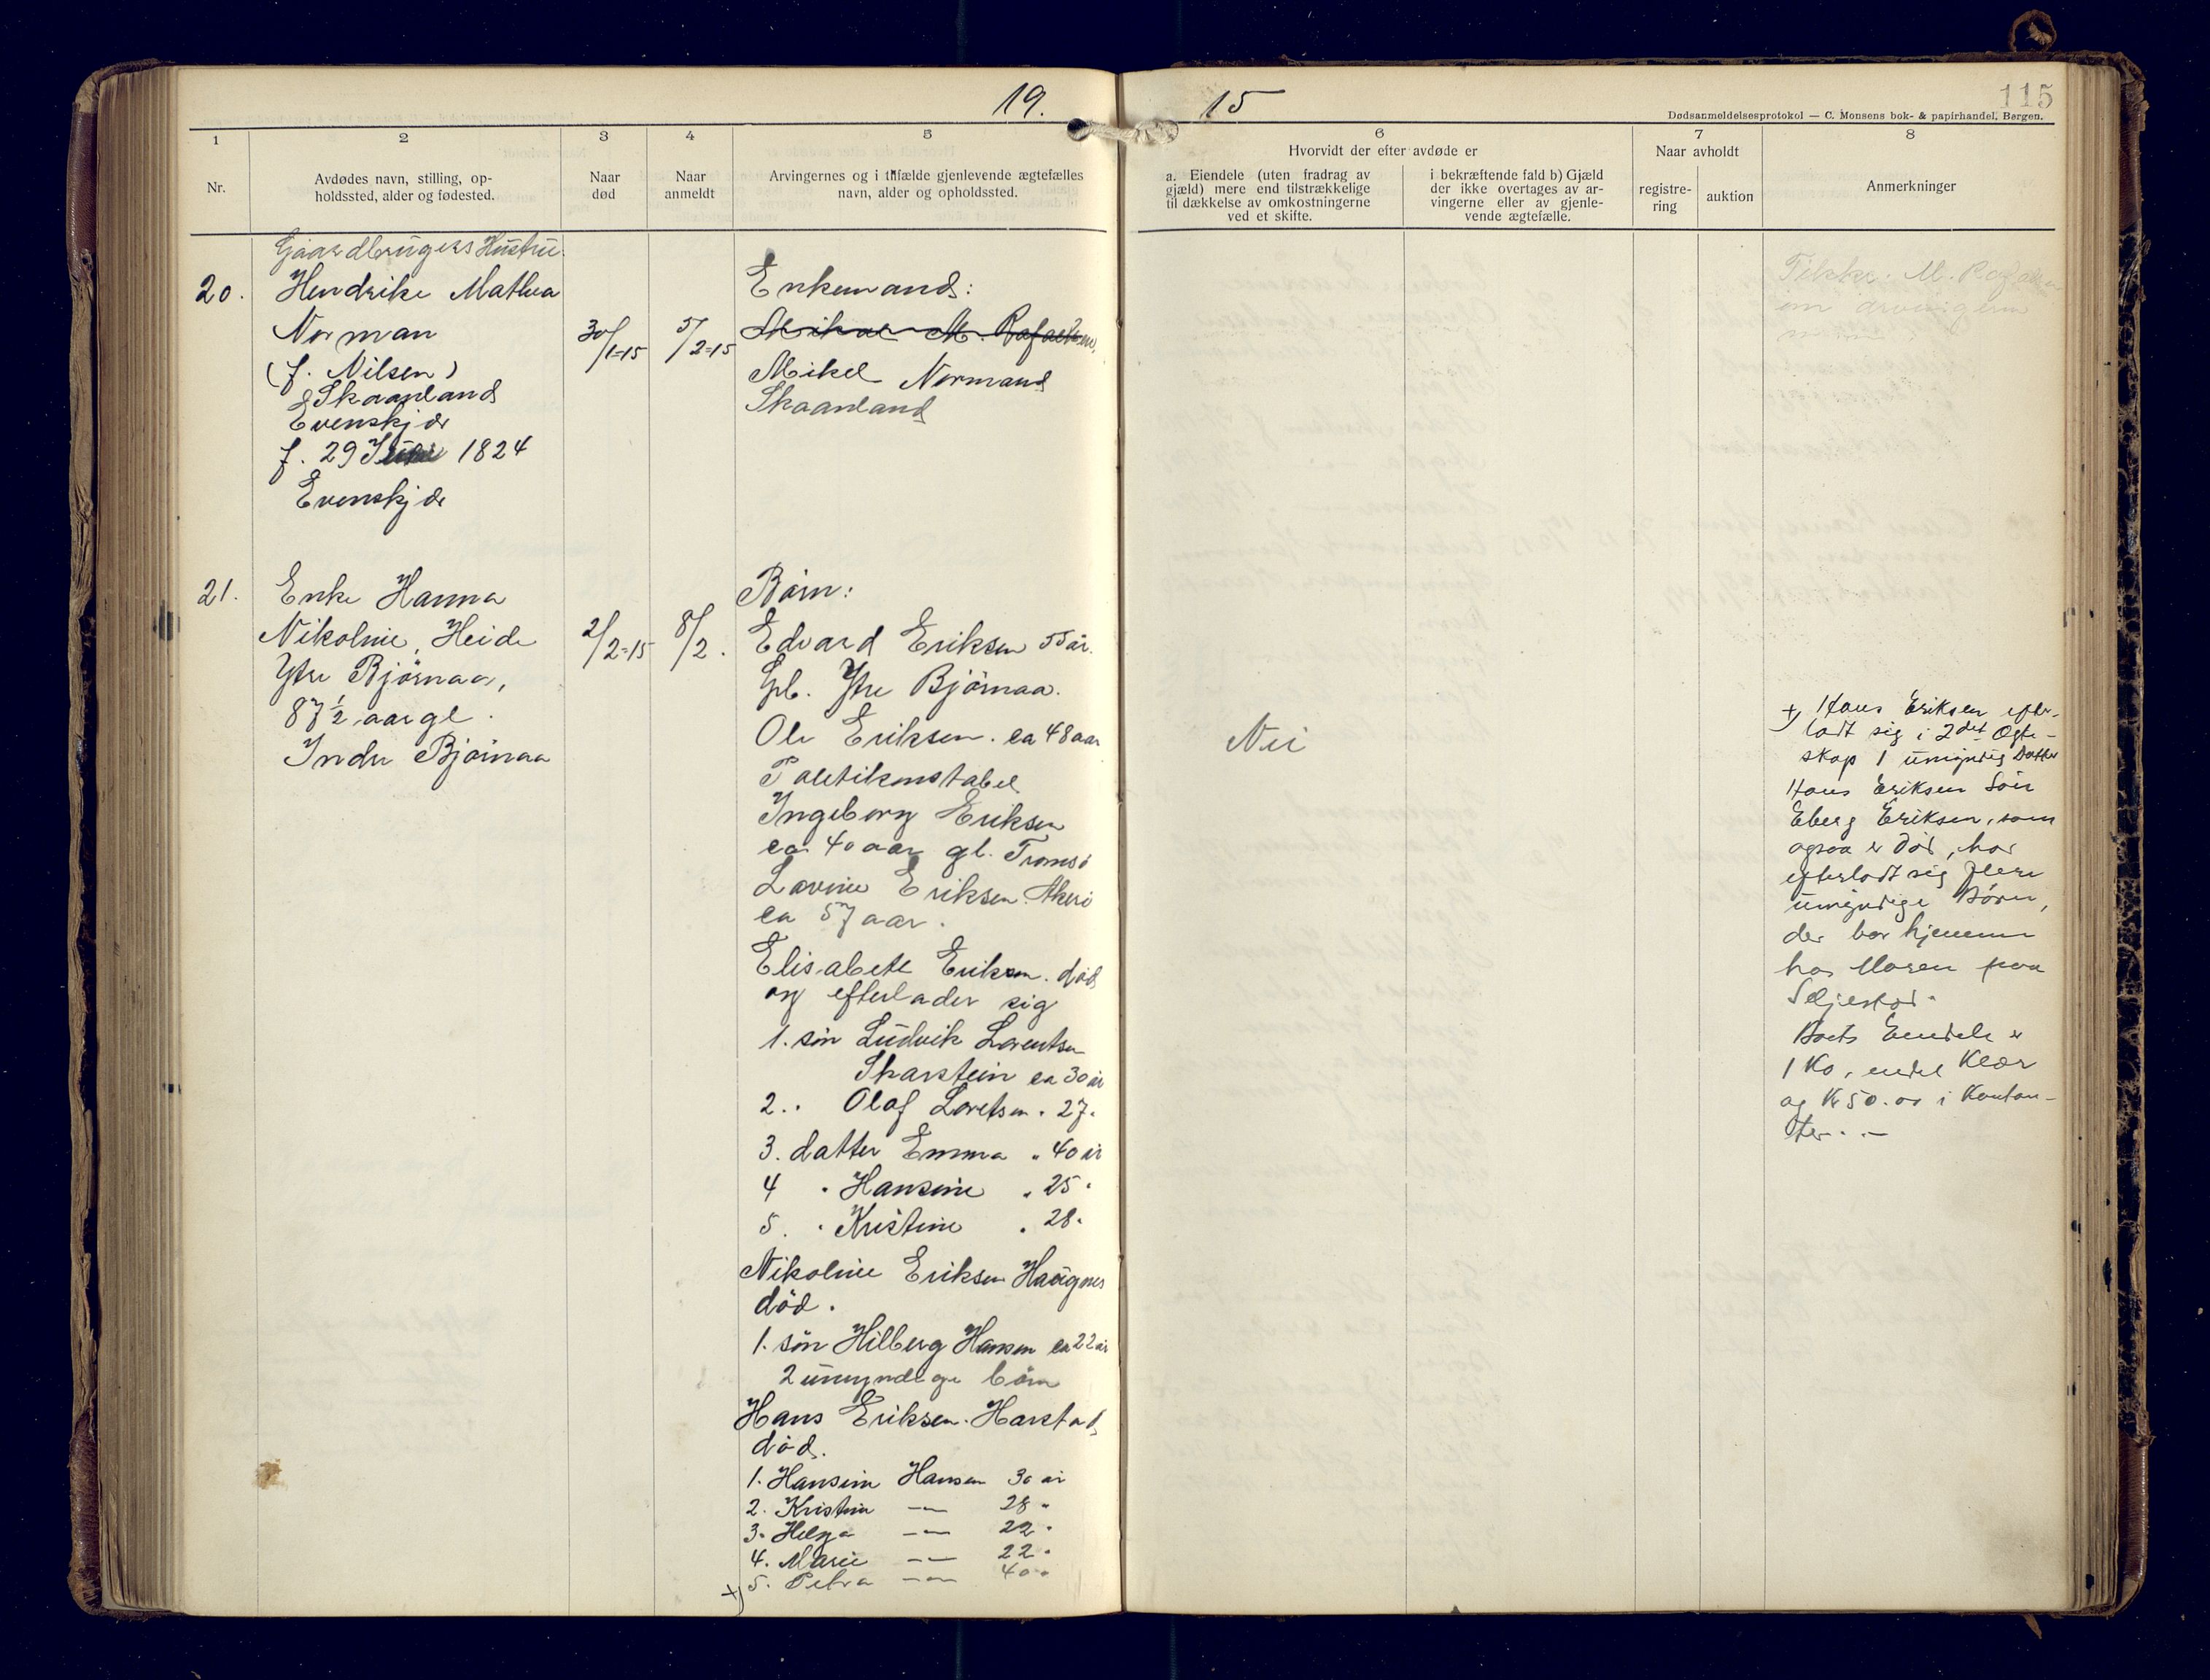 19.
15
115
Dødsanmeldelsesprotokol — C. Monsens bok- & papirhandel, Bergen.
1
2
3
4
5
6
7
8
Nr.
Avdødes navn, stilling, op-
holdssted, alder og fødested.
Naar
død
Naar
anmeldt
Arvingernes og i tilfælde gjenlevende ægtefælles
navn, alder og opholdssted.
Hvorvidt der efter avdøde er
a. Eiendele (uten fradrag av
gjæld) mere end tilstrækkelige
til dækkelse av omkostningerne
ved et skifte.
i bekræftende fald b) Gjæld
der ikke overtages av ar-
vingerne eller av gjenle-
vende ægtefælle.
Naar avholdt
registre-
ring
auktion
Anmerkninger
Gaardbrugers Hustru
20.
Hendrike Mathea
Norman
(f. Nilsen)
Skaanland
Evenskjær
f. 29 1824
Evenskjær
30/1=15
5/2=15
Enkemand:
Mikal M. Rafaelsen,
Mikel Normand
Skaanland
Tikkr. M. Rafaelsen
om arvingerne
21.
Enke Hanna
Nikoline, Heide
Ytre Bjørnaa,
87 1/2 aar gl.
Indre Bjørnaa
2/2=15
8/2.
Børn:
Edvard Eriksen 55 år.
Gpb. Ytre Bjørnaa.
Ole Eriksen. ca 48 aar
Politikonstabel
Ingeborg Eriksen
ca. 40 aar gl. Tromsø
Lovine Eriksen.
ca 57 aar.
Elisabete Eriksen. död
og efterlader sig
1. sön Ludvik Lorentsen
Skarstein ca 30 år
2. " Olaf Loretsen . 27.
3. datter Emma " 40 år
4 " Hansine " 25 "
5. " Kristine " 28 "
Nikoline Eriksen Haugnes
död.
1. sön Hilberg Hansen ca 22 år
2 umyndige börn
Hans Eriksen. Harstad
död.
1. Hansine Hansen 30 år
2. Kristine — 28 "
3. Helga — 22 "
4. Marie — 22 "
5. Petra — 40 "
+)
Nei
+) Hans Eriksen efter-
ladt sig i 2det Ægte-
skap 1 umyndig Datter
Hans Eriksen Sön
Eberg Eriksen, som
ogsaa er död, har
efterladt sig flere
umyndige Börn,
der bor hjemme
hos Moren paa
Seljestad.
Boets Eiendele er
1 Ko, endel Klær
og Kr 50.00 i Kontan-
ter. . —